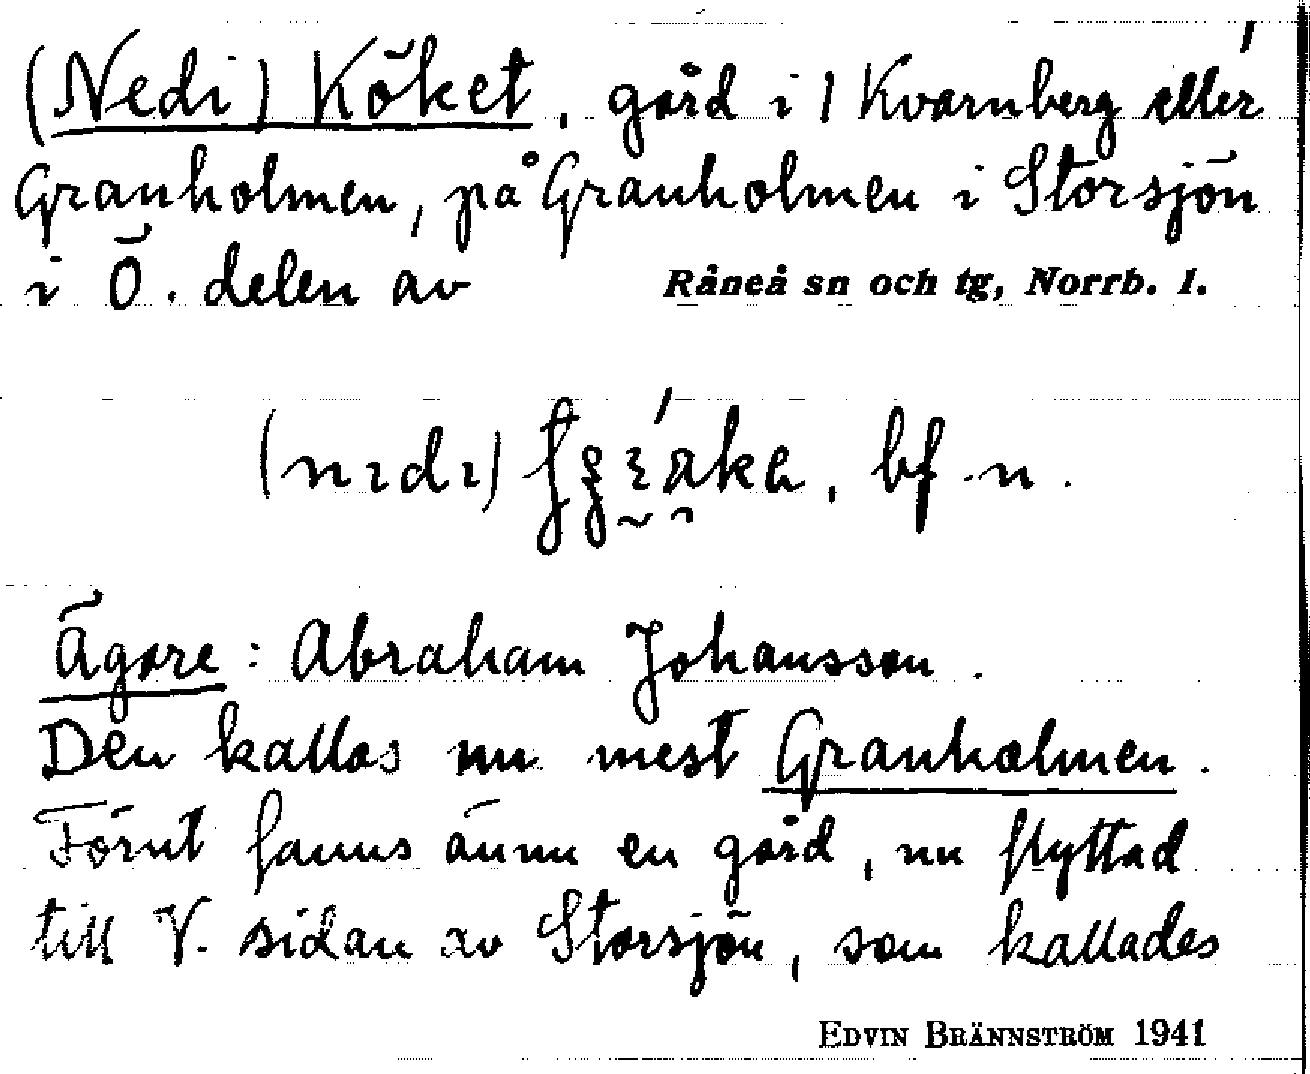 (Nedi) Köket, gård i 1 Kvarnberg eller
Granholmen, på Granholmen i Storsjön
i Ö. delen av Råneå sn och tg, Norrb. l.
bf n.
Ägare: Abraham Johansson.
Den kallas nu mest Granholmen.
Förut fanns ännu en gård, nu flyttad
till V. sidan av Storsjön, som kallades
EDVIN BRÄNNSTRÖM 1941